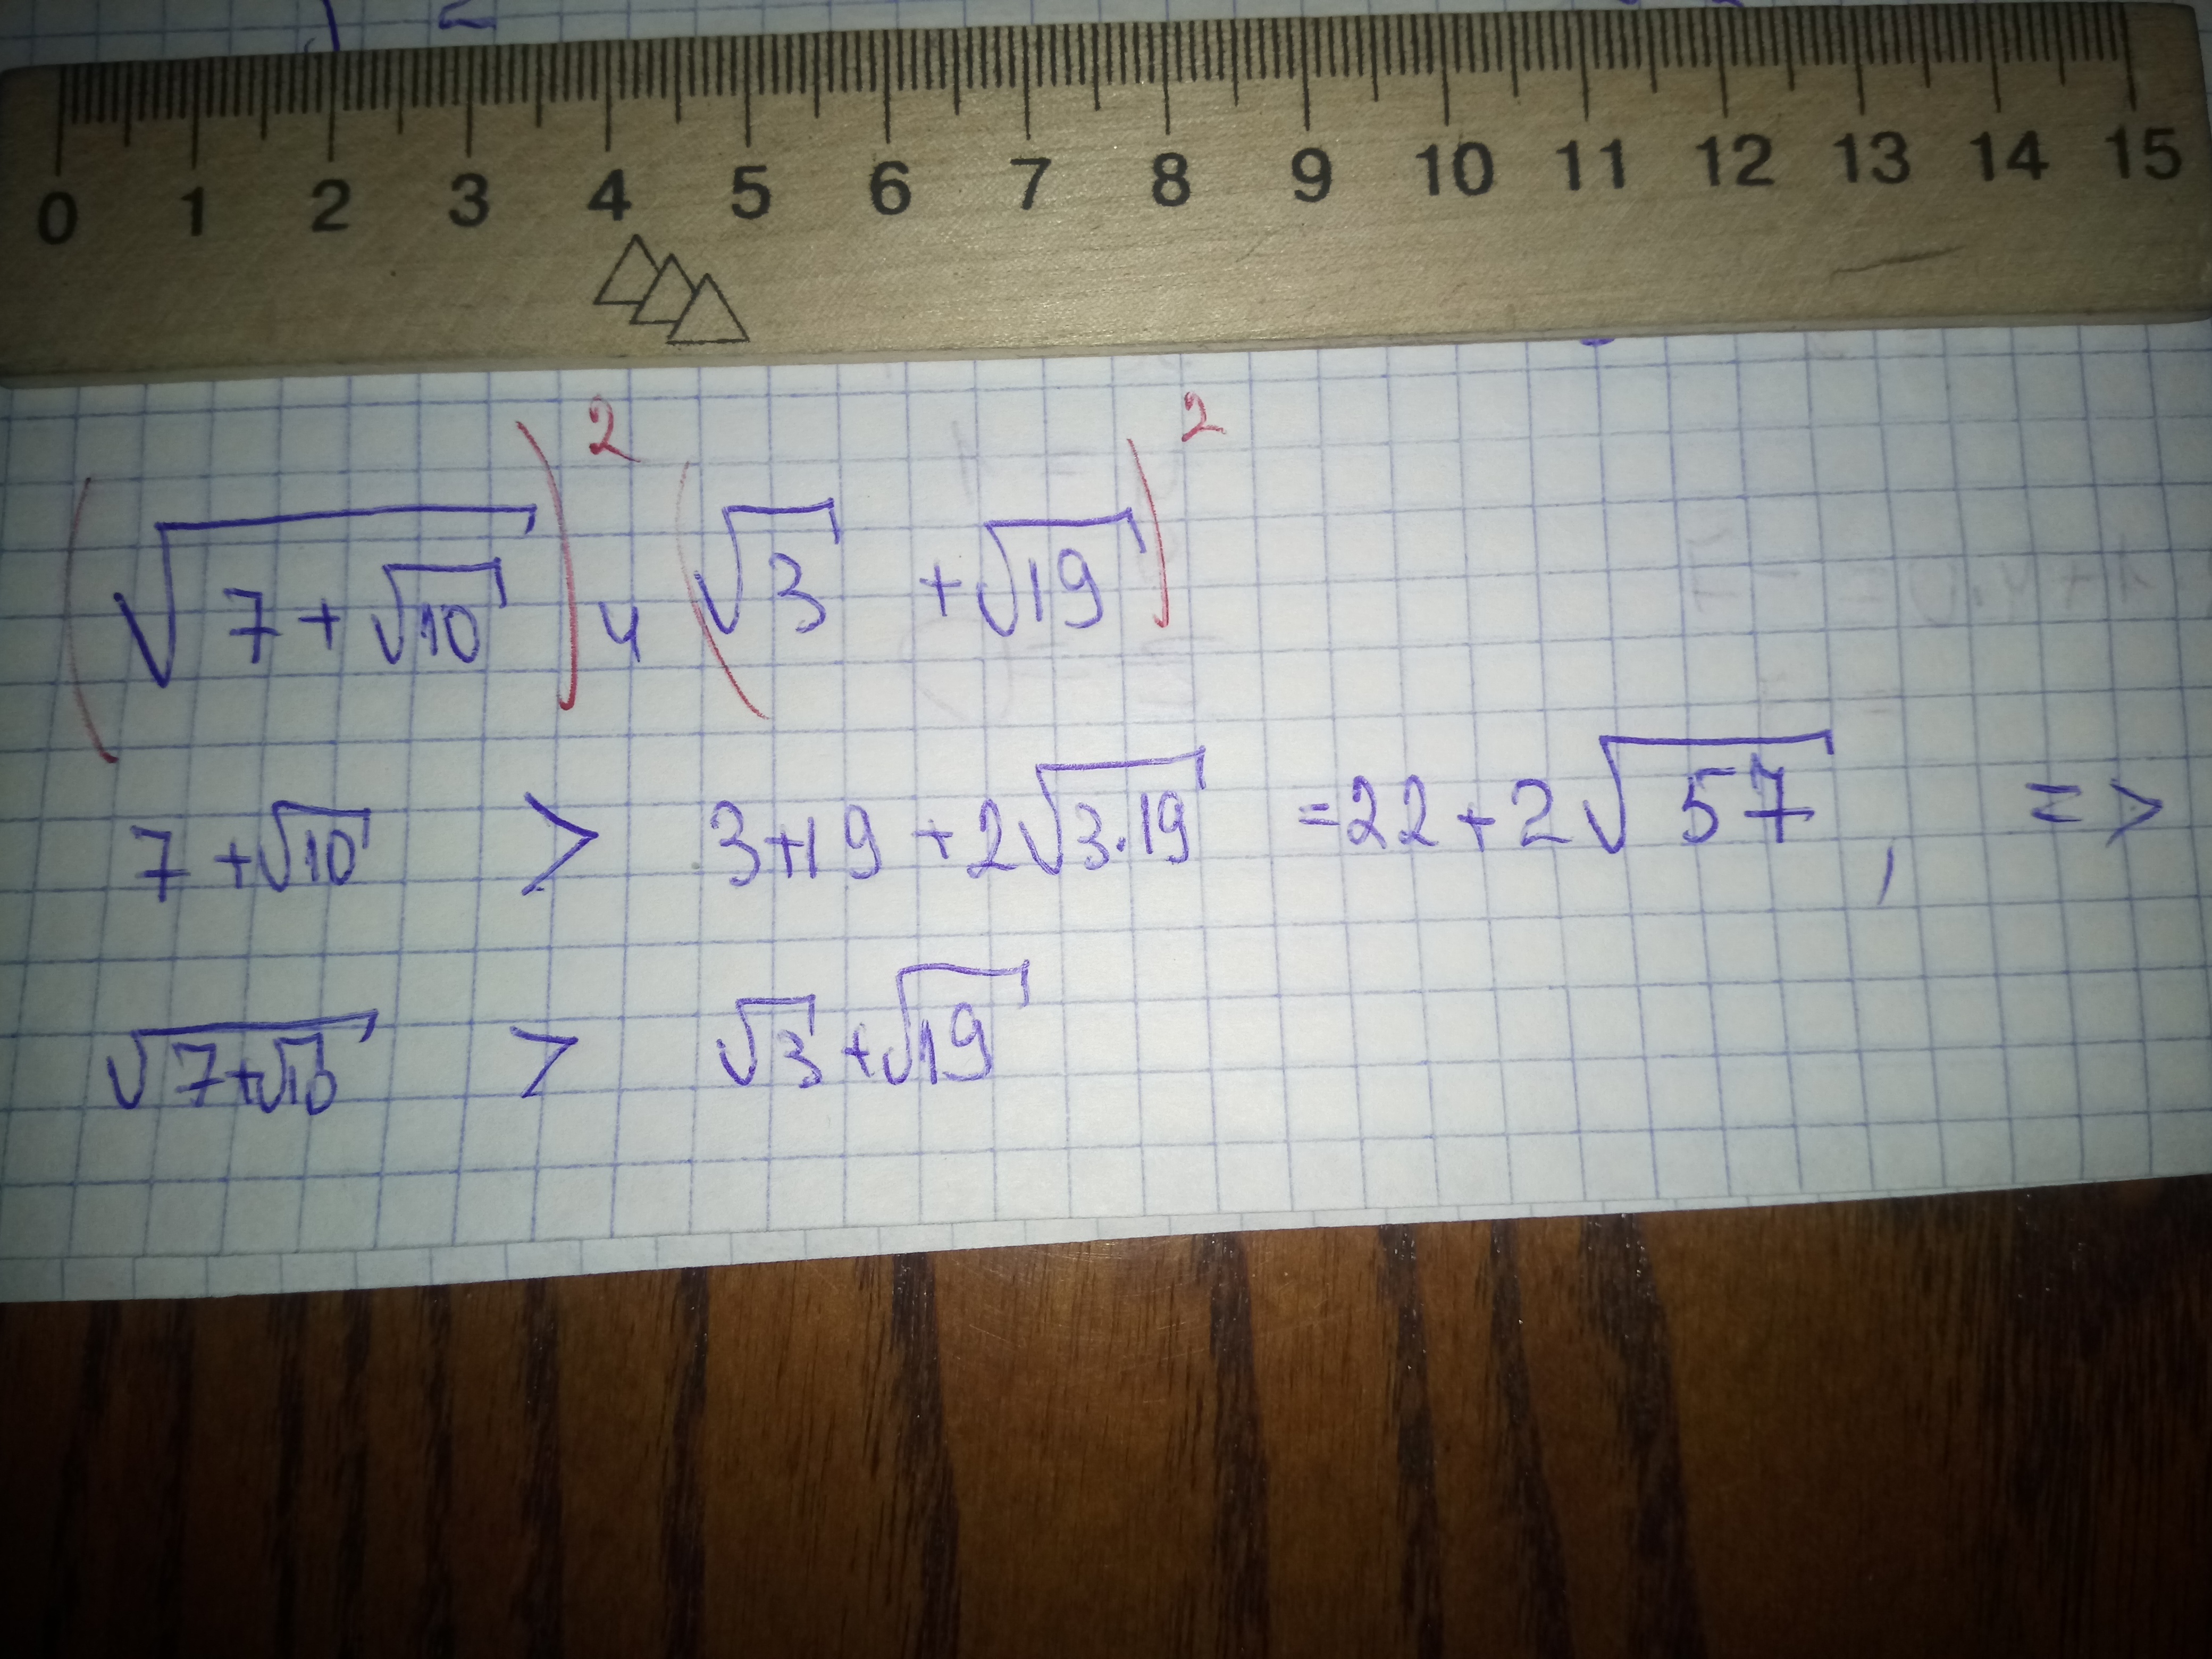 0 1 2 3 4 5 6 7 8 9 10 11 12 13 14 15
(√(7+√10))² и (√3 +√19)²
7 +√10 > 3+19 +2√3·19 =22+2√57, =>
√(7+√10) > √3+√19